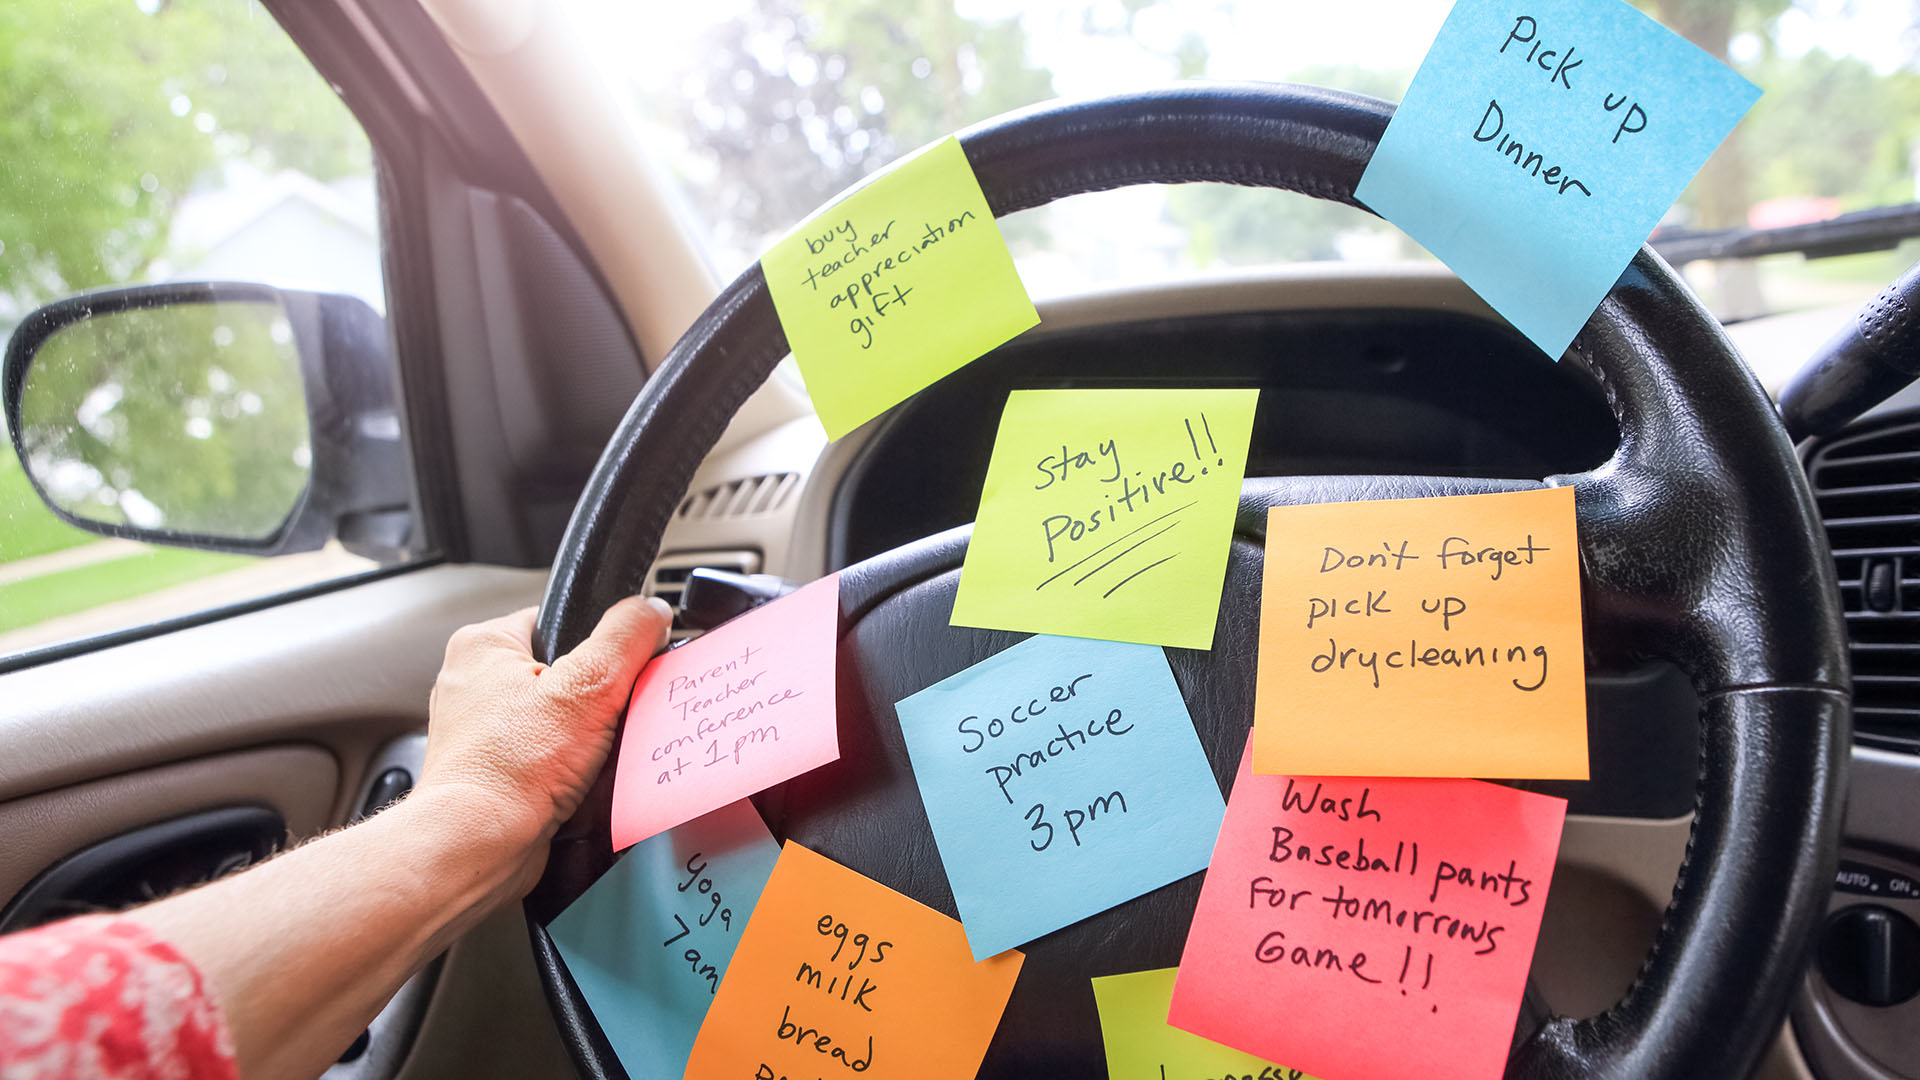 Pick up
Dinner
buy
teacher
appreciation
gift
Stay
Positive!!
Don't forget
pick up
drycleaning
Parent
Teacher
conference
at 1pm
Soccer
practice
3pm
Wash
Baseball pants
For tomorrows
Game!!
yoga
7am
eggs
milk
bread
AUTO ON